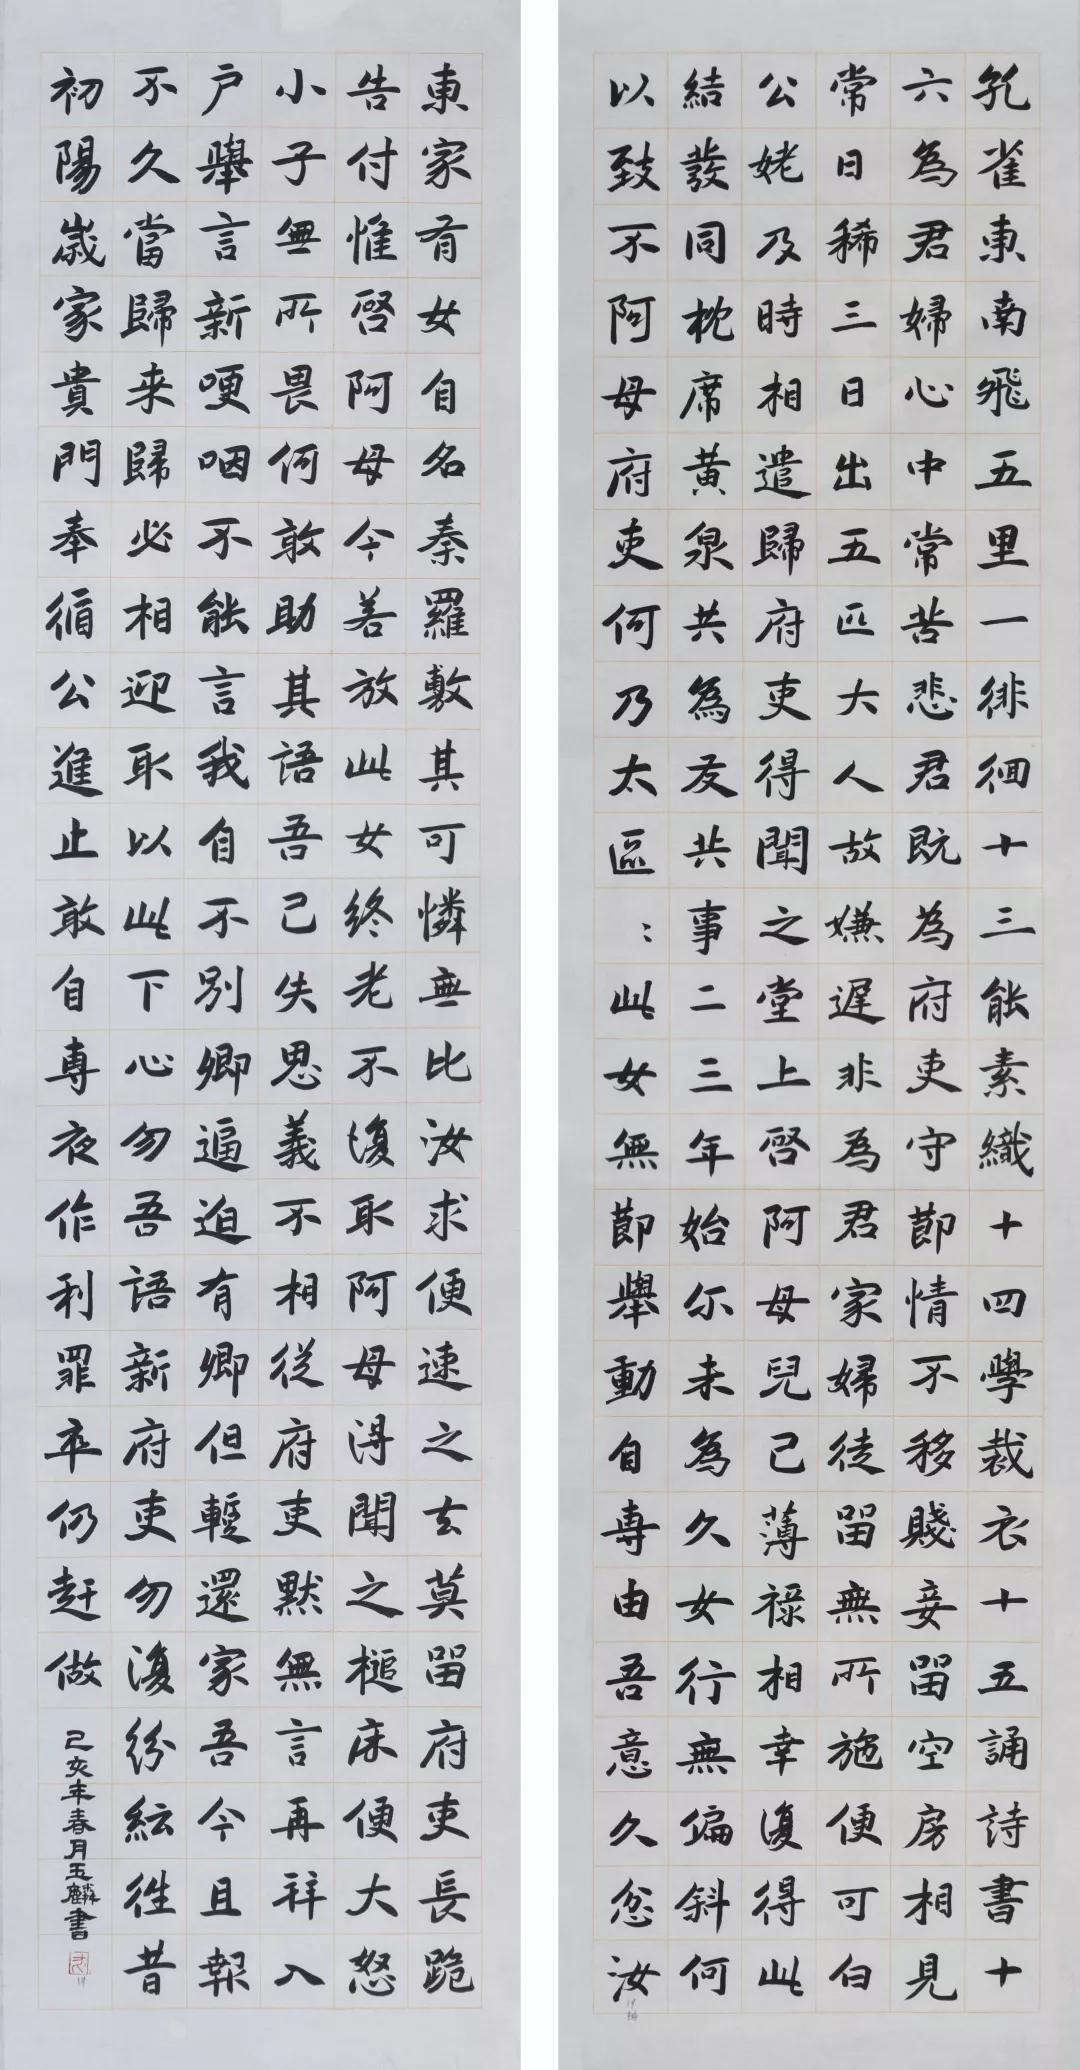 孔雀東南飛五里一徘徊十三能素織十四學裁衣十五誦詩書十
六為君婦心中常苦悲君既為府吏守節情不移賤妾留空房相見
常日稀三日出五匹大人故嫌遲非為君家婦徒留無所施便可白
公姥及時相遣歸府吏得聞之堂上啓阿母兒已薄祿相幸復得此
結發同枕席黃泉共為友共事二三年始尔未為久女行無偏斜何
以致不阿母府吏何乃太區：此女無節舉動自專由吾意久忿汝
東家有女自名秦羅敷其可憐無比汝求便速之去莫留府吏長跪
告付惟啓阿母今若放此女終老不復取阿母得聞之槌床便大怒
小子無所畏何敢助其語吾已失恩義不相從府吏默無言再祥入
户舉言新哽咽不能言我自不別卿逼迫有卿但輕還家吾今且報
不久當歸来歸必相迎取以此下心勿吾語新府吏勿復紛紜往昔
初陽歲家貴門奉循公進止敢自專夜作利罪卒仍赶做
己亥年春月玉麟書